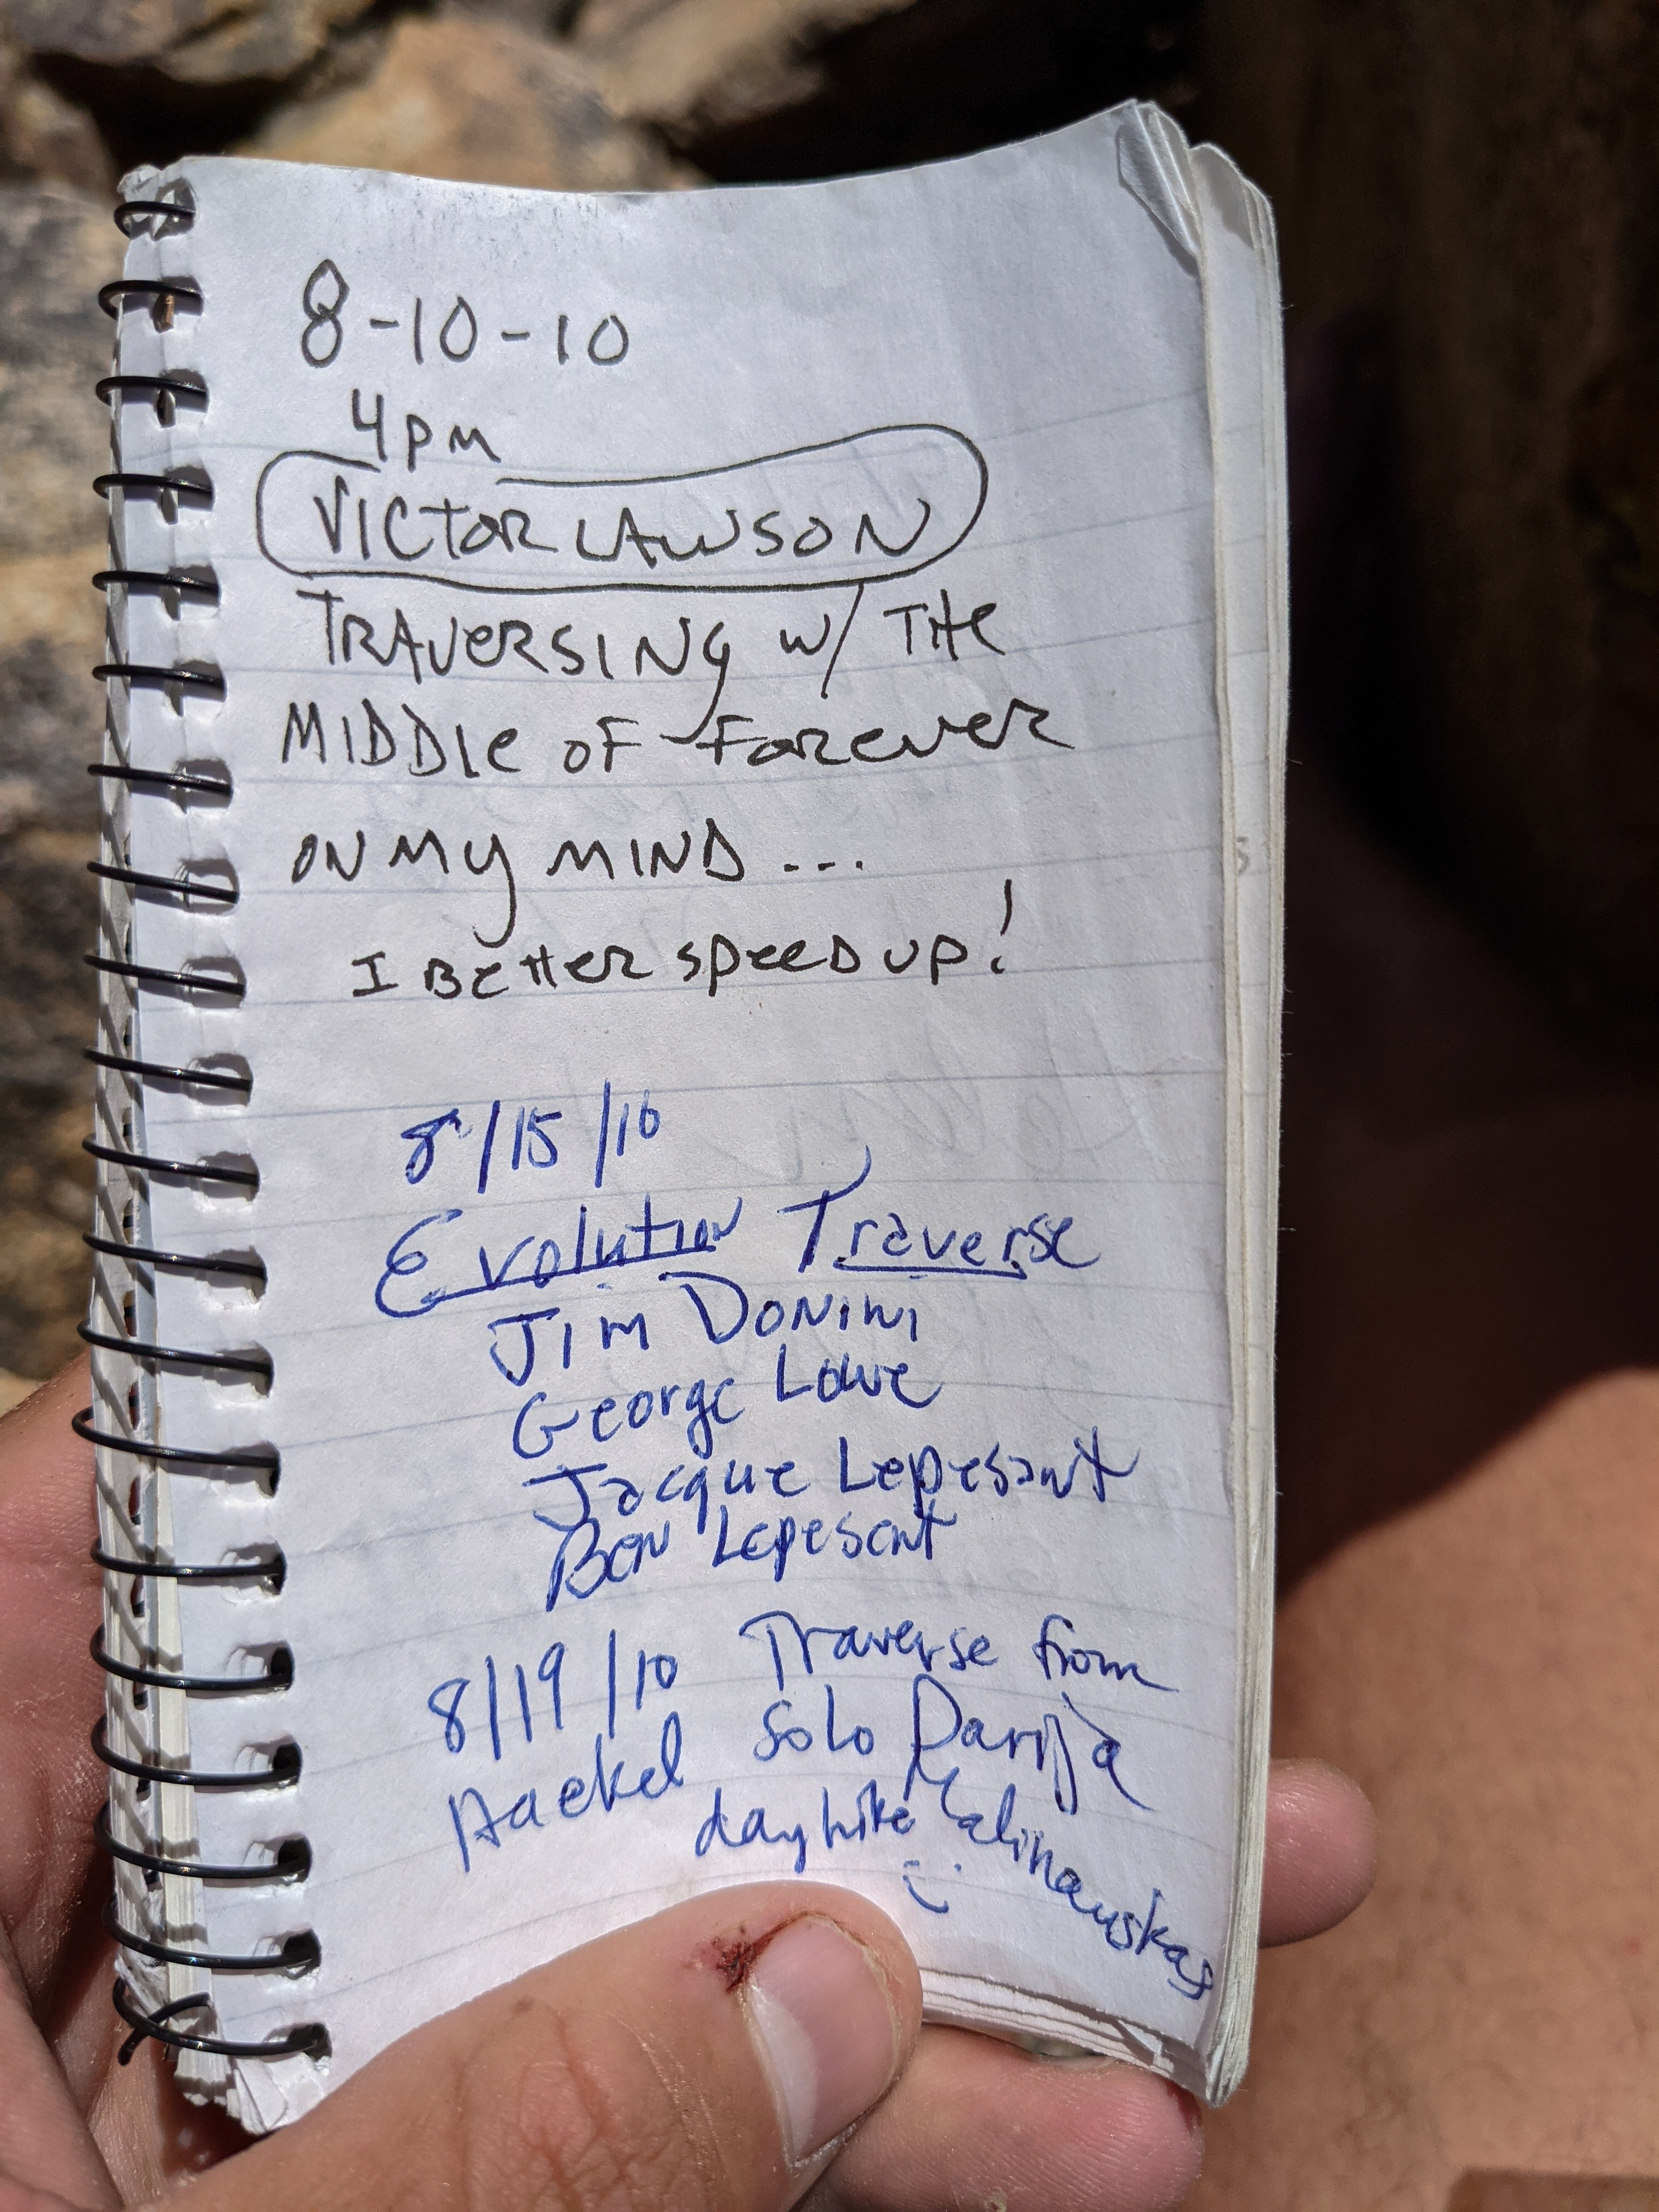 8-10-10
4pm
VICTOR LAWSON
TRAVERSING W/ THE
MIDDLE OF FOREVER
ON MY MIND ...
I BETTER SPEED UP!
8/15/10
Evolution Traverse
Jim Donini
George Lowe
Jacque Lepesant
Ben Lepesant
8/19/10 Traverse from
Haekel solo Darija
day hike Kalinauskas